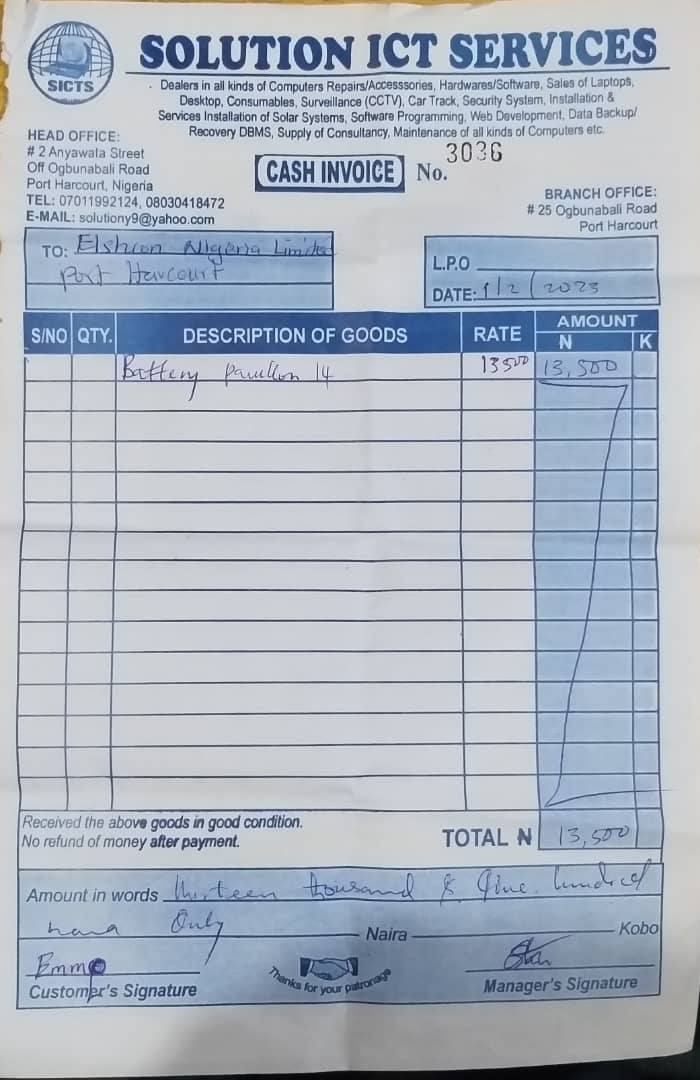 SICTS
SOLUTION ICT SERVICES
Dealers in all kinds of Computers Repairs/Accesssories, Hardwares/Software, Sales of Laptops,
Desktop, Consumables, Surveillance (CCTV), Car Track, Security System, Installation &
Services Installation of Solar Systems, Software Programming, Web Development, Data Backup/
Recovery DBMS, Supply of Consultancy, Maintenance of all kinds of Computers etc.
HEAD OFFICE:
# 2 Anyawata Street
Off Ogbunabali Road
Port Harcourt, Nigeria
TEL: 07011992124, 08030418472
E-MAIL: solutiony9@yahoo.com
CASH INVOICE No. 3036
BRANCH OFFICE:
# 25 Ogbunabali Road
Port Harcourt
TO: Elshcon Nigeria Limited
Port Harcourt
L.P.O
DATE: 1/2/2023
S/NO QTY. DESCRIPTION OF GOODS RATE AMOUNT
N K
Battery Pavillon 14 13500 13,500
Received the above goods in good condition.
No refund of money after payment.
TOTAL N 13,500
Amount in words thirteen thousand & five hundred
naira Only Naira Kobo
Emma
Customer's Signature
Thanks for your patronage
Manager's Signature